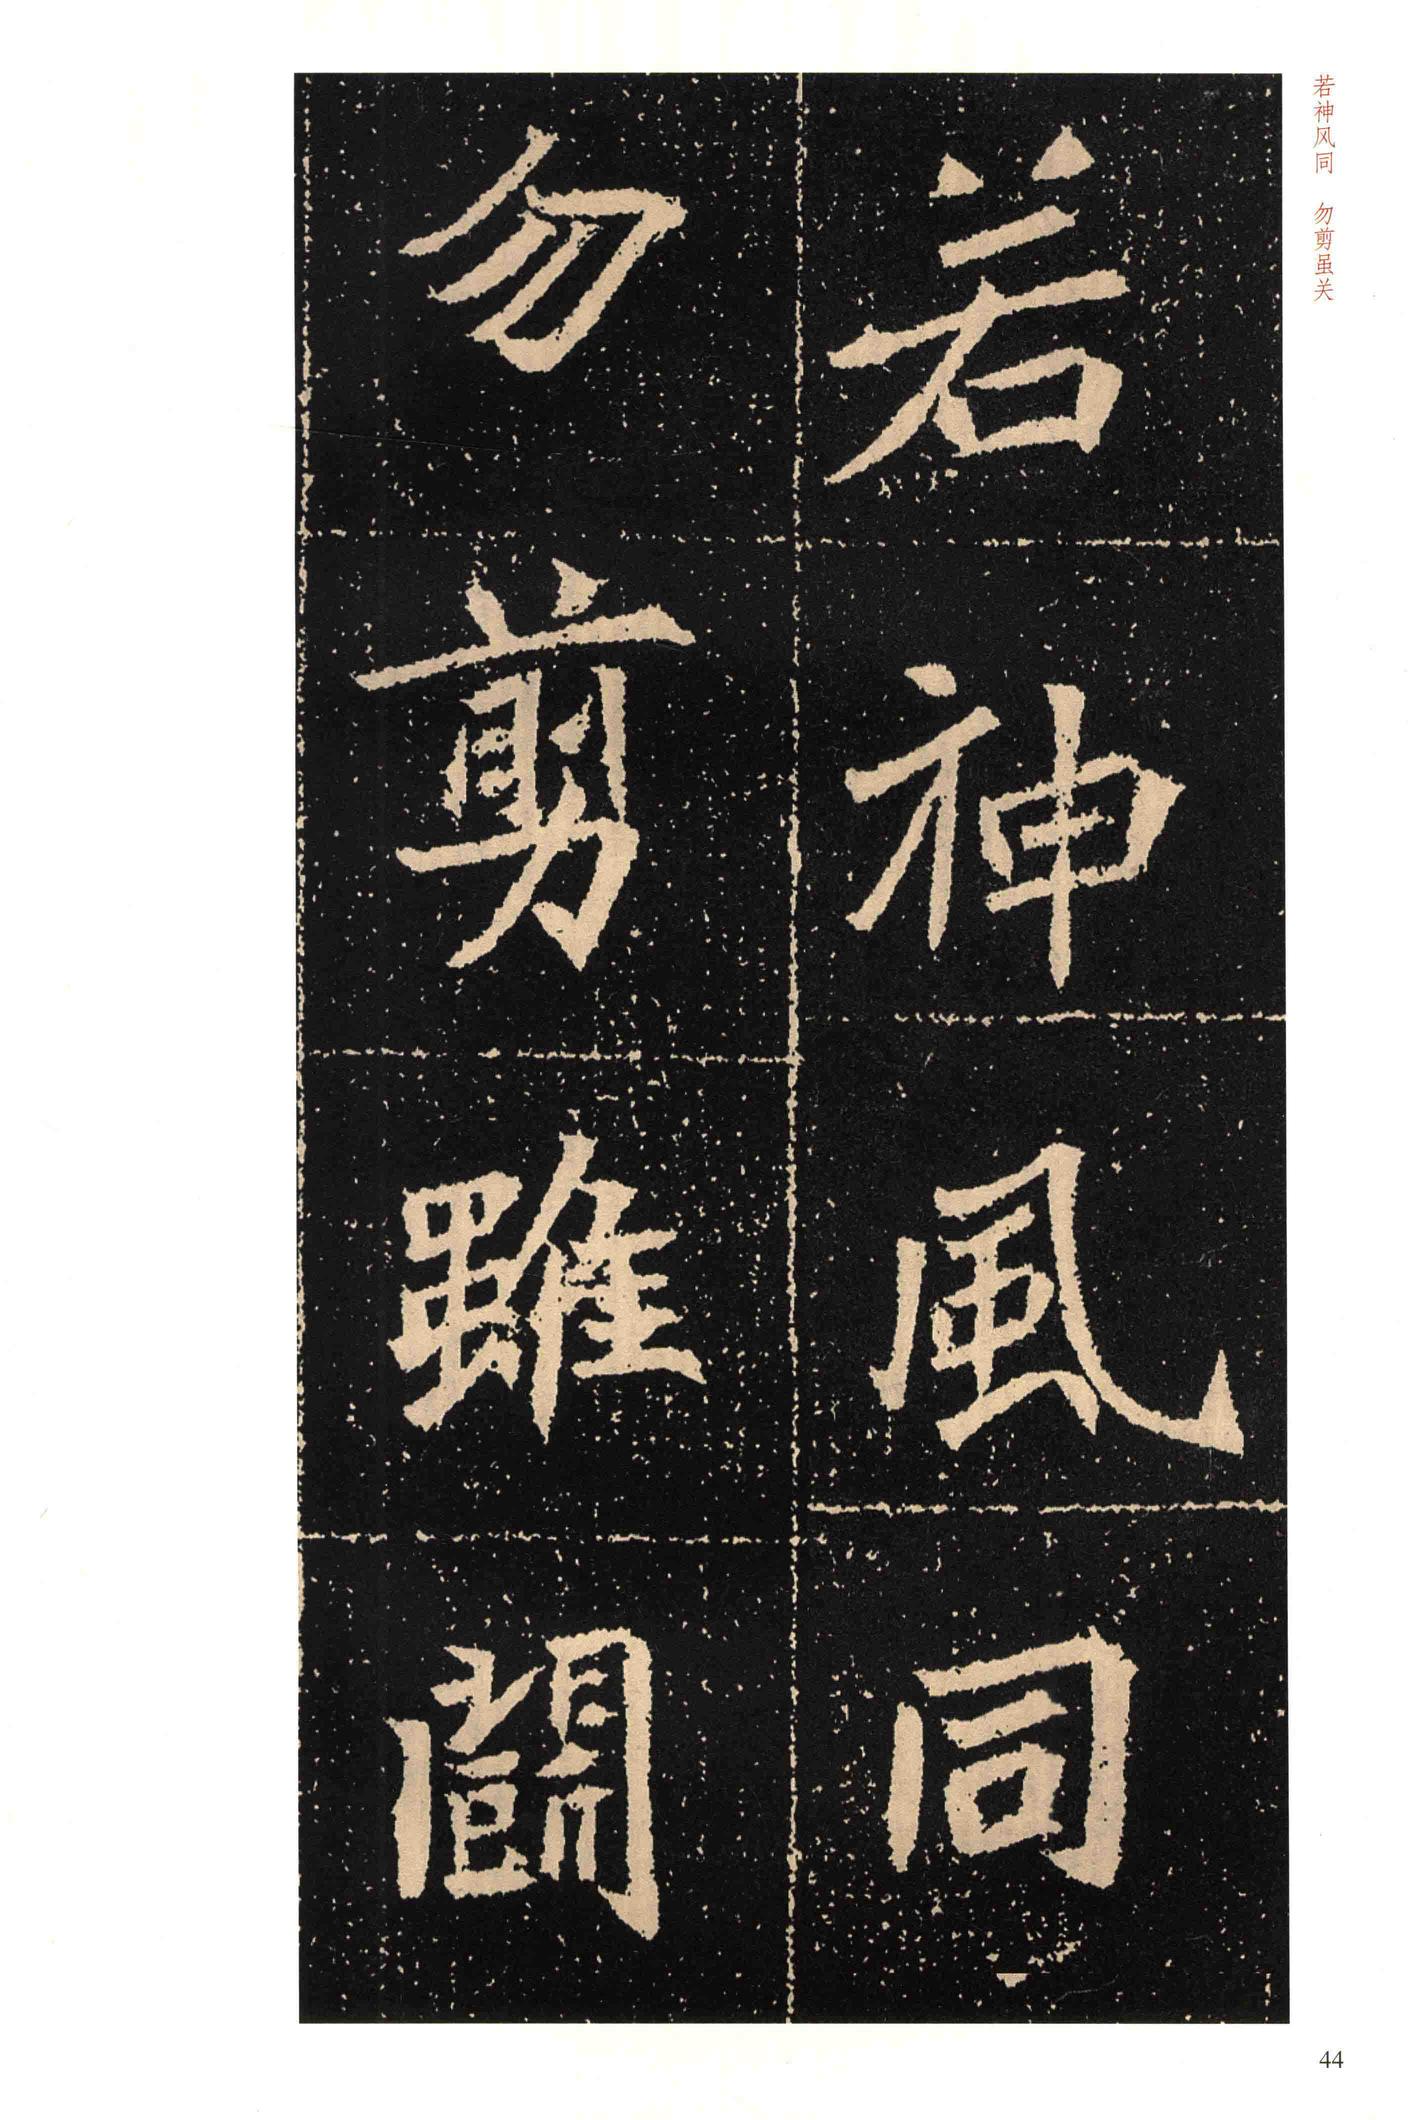 若神風同
勿剪雖關
若神风同 勿剪虽关
44